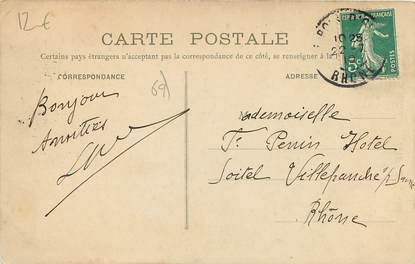 12 €
CARTE POSTALE
Certains pays étrangers n'acceptant pas la correspondance de ce côté, se renseigner à la
CORRESPONDANCE
ADRESSE
RHÔNE
POSTES
69
Bonjour
Amitiés
Mademoiselle
Perrin Hotel
Soitel Villefranche s/ Saone
Rhône